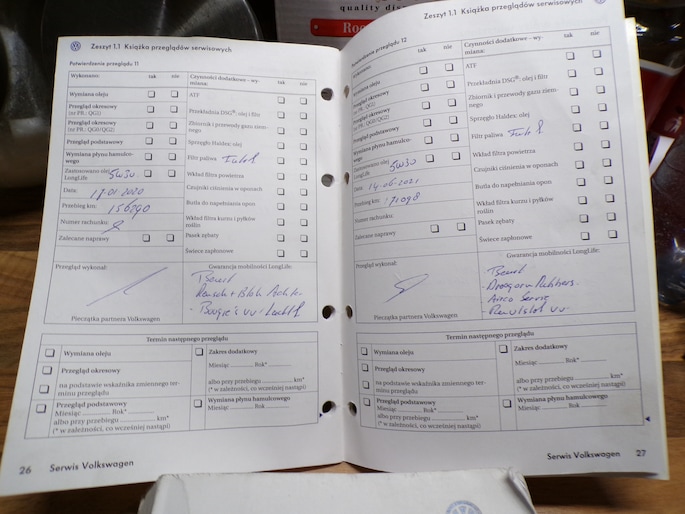 Zeszyt 1.1 Książka przeglądów serwisowych
Potwierdzenie przeglądu 11
Wykonano: tak nie
Wymiana oleju
Przegląd okresowy
(nr PR.: QG1)
Przegląd okresowy
(nr PR.: QG0/QG2)
Przegląd podstawowy
Wymiana płynu hamulco-
wego
Zastosowano olej 5W30
LongLife
Data: 17-01-2020
Przebieg km: 156290
Numer rachunku:
Zalecane naprawy
Przegląd wykonał:
Pieczątka partnera Volkswagen
Czynności dodatkowe - wy-
miana: tak nie
ATF
Przekładnia DSG®: olej i filtr
Zbiornik i przewody gazu ziem-
nego
Sprzęgło Haldex: olej
Filtr paliwa
Wkład filtra powietrza
Czujniki ciśnienia w oponach
Butla do napełniania opon
Wkład filtra kurzu i pyłków
roślin
Pasek zębaty
Świece zapłonowe
Gwarancja mobilności LongLife:
Termin następnego przeglądu
Wymiana oleju
Przegląd okresowy
na podstawie wskaźnika zmiennego ter-
minu przeglądu
Przegląd podstawowy
Miesiąc Rok*
albo przy przebiegu km*
(* w zależności, co wcześniej nastąpi)
Zakres dodatkowy
Miesiąc Rok*
albo przy przebiegu km*
(* w zależności, co wcześniej nastąpi)
Wymiana płynu hamulcowego
Miesiąc Rok
26 Serwis Volkswagen
Zeszyt 1.1 Książka przeglądów serwisowych
Potwierdzenie przeglądu 12
Wykonano: tak nie
Wymiana oleju
Przegląd okresowy
(nr PR.: QG1)
Przegląd okresowy
(nr PR.: QG0/QG2)
Przegląd podstawowy
Wymiana płynu hamulco-
wego
Zastosowano olej 5W30
LongLife
Data 14-06-2021
Przebieg km: 171098
Numer rachunku:
Zalecane naprawy
Przegląd wykonał:
Pieczątka partnera Volkswagen
Czynności dodatkowe - wy-
miana: tak nie
ATF
Przekładnia DSG®: olej i filtr
Zbiornik i przewody gazu ziem-
nego
Sprzęgło Haldex: olej
Filtr paliwa
Wkład filtra powietrza
Czujniki ciśnienia w oponach
Butla do napełniania opon
Wkład filtra kurzu i pyłków
roślin
Pasek zębaty
Świece zapłonowe
Gwarancja mobilności LongLife:
Termin następnego przeglądu
Wymiana oleju
Przegląd okresowy
na podstawie wskaźnika zmiennego ter-
minu przeglądu
Przegląd podstawowy
Miesiąc Rok*
albo przy przebiegu km*
(* w zależności, co wcześniej nastąpi)
Zakres dodatkowy
Miesiąc Rok*
albo przy przebiegu km*
(* w zależności, co wcześniej nastąpi)
Wymiana płynu hamulcowego
Miesiąc Rok
Serwis Volkswagen 27